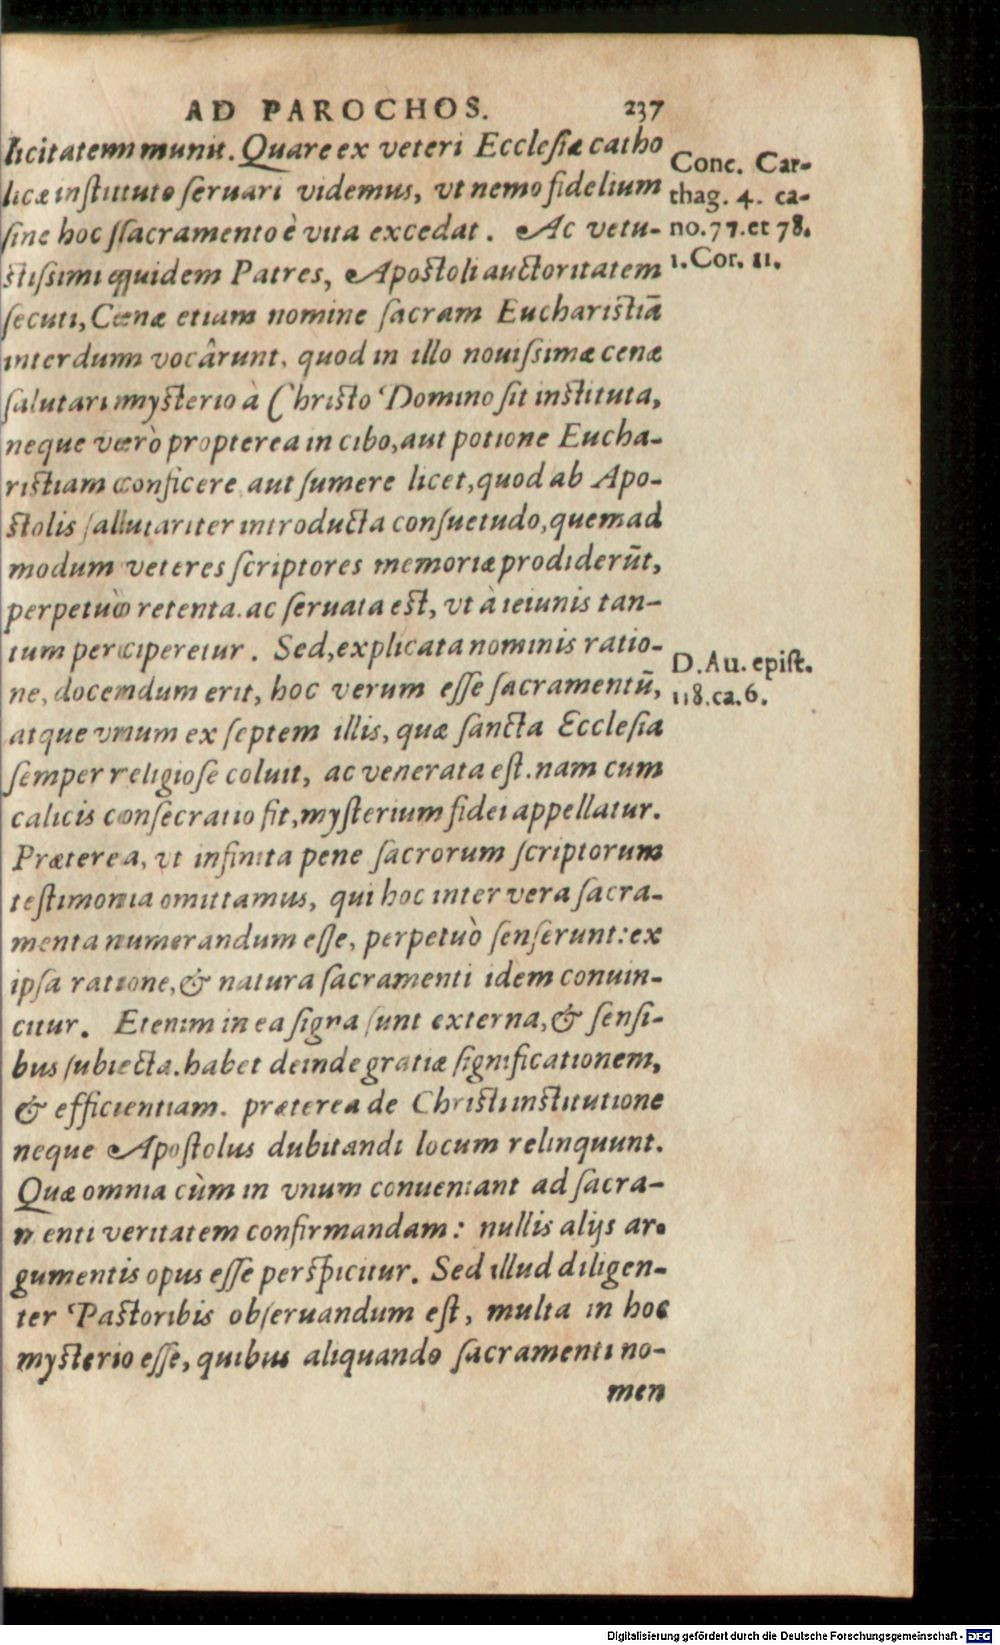 AD PAROCHOS. 237
licitatem munit. Quare ex veteri Ecclesiæ catho
licæ instituto seruari videmus, vt nemo fidelium
sine hoc sacramento è vita excedat. Ac vetu-
stissimi quidem Patres, Apostoli auctoritatem
secuti, Cœnæ etiam nomine sacram Eucharistiā
interdum vocârunt, quod in illo nouissimæ cenæ
salutari mysterio à Christo Domino sit instituta,
neque verò propterea in cibo, aut potione Eucha-
ristiam conficere aut sumere licet, quod ab Apo-
stolis salutariter introducta consuetudo, quemad
modum veteres scriptores memoriæ prodiderūt,
perpetuò retenta. ac seruata est, vt à ieiunis tan-
tum perciperetur. Sed, explicata nominis ratio-
ne, docendum erit, hoc verum esse sacramentū,
atque vnum ex septem illis, quæ sancta Ecclesia
semper religiose coluit, ac venerata est. nam cum
calicis consecratio fit, mysterium fidei appellatur.
Præterea, vt infinita pene sacrorum scriptorum
testimonia omittamus, qui hoc inter vera sacra-
menta numerandum esse, perpetuò senserunt: ex
ipsa ratione, & natura sacramenti idem conuin-
citur. Etenim in ea signa sunt externa, & sensi-
bus subiecta. habet deinde gratiæ significationem,
& efficientiam. præterea de Christi institutione
neque Apostolus dubitandi locum relinquunt.
Quæ omnia cùm in vnum conueniant ad sacra-
menti veritatem confirmandam: nullis alijs ar-
gumentis opus esse perspicitur. Sed illud diligen-
ter Pastoribis obseruandum est, multa in hoc
mysterio esse, quibus aliquando sacramenti no-
men
Conc. Car-
thag. 4. ca-
no. 77. et 78.
1. Cor. 11.
D. Au. epist.
118. ca. 6.
Digitalisierung gefördert durch die Deutsche Forschungsgemeinschaft - DFG